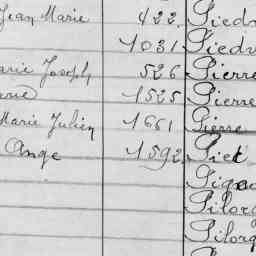 Jean Marie 422. Pied
1031 Pied
Marie Joseph 526 Pierre
1525 Pierre
Marie Julien 1661 Pierre
Ange 1592 Piet
Pigeo
Pilor
Pilorg